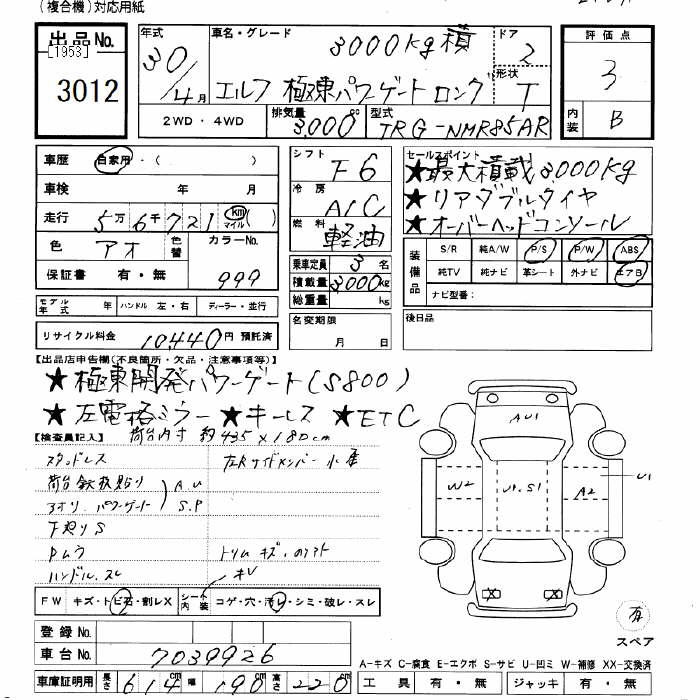 (複合機)対応用紙
出品No. [1953] 3012
年式 30/4月
車名・グレード 3000kg積 エルフ 極東パワーゲート ロング
ドア 2
形状 T
評価点 3
内装 B
2WD・4WD 排気量 3,000cc 型式 TRG-NMR85AR
車歴 自家用・( )
車検 年 月
走行 5万6千721 km マイル ( )
色 アオ 色替 カラーNo. 999
保証書 有・無
シフト F6
冷房 A/C
燃料 軽油
乗車定員 3名
積載量 3000kg
総重量 kg
名変期限 月 日
セールスポイント
★最大積載3000kg
★リアダブルタイヤ
★オーバーヘッドコンソール
装備品 S/R 純A/W P/S P/W ABS
純TV 純ナビ 革シート 外ナビ エアB
ナビ型番:
後日品
モデル年式 年 ハンドル 左・右 ディーラー・並行
リサイクル料金 10,440円 預託済
【出品店申告欄(不良箇所・欠品・注意事項等)】
★極東開発パワーゲート(S800)
★左電格ミラー ★キーレス ★ETC
荷台内寸 約435×180cm
【検査員記入】
スタッドレス 左Rサイドメンバー小歪
荷台鉄板貼り
アオリ.パワーゲート A.U S.P
下廻りS
Pムラ
ハンドル.スレ キレ
FW キズ・トビ石・割レX シート内装 コゲ・穴・汚レ・シミ・破レ・スレ
登録No.
車台No. 7039926
車庫証明用 長さ 614cm 幅 190cm 高さ 220cm
AU1
W2
U1.S1
A2
U1
有
スペア
A-キズ C-腐食 E-エクボ S-サビ U-凹ミ W-補修 XX-交換済
工具 有・無 ジャッキ 有・無